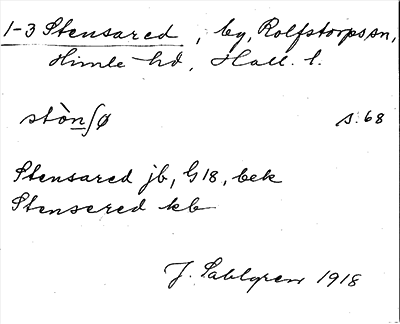 1-3 Stensared, by, Rolfstorps sn,
Himle hd, Hall. l.
stònʃø s. 68
Stensared jb, G18, bek
Stensered kb
J. Sahlgren 1918